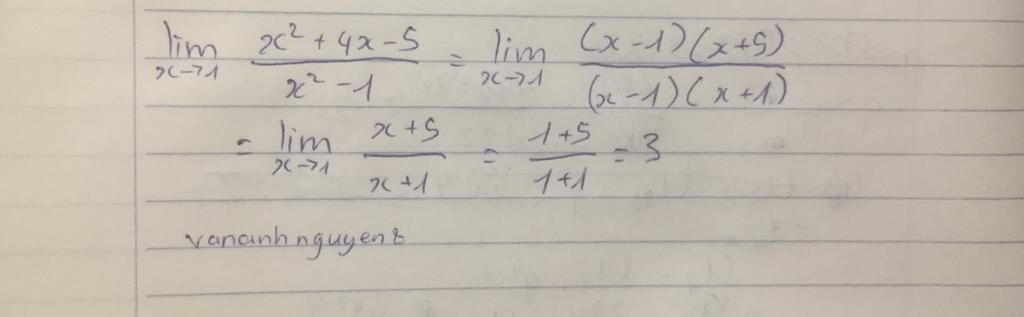 lim x→1 (x² + 4x - 5)/(x² - 1) = lim x→1 ((x-1)(x+5))/((x-1)(x+1))
= lim x→1 (x+5)/(x+1) = (1+5)/(1+1) = 3
vananhnguyen8